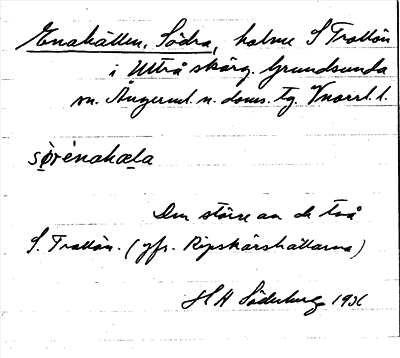 Enahällen, Södra, holme S Trollön
i Ulvö skärg. Grundsunda
sn. Ångerml. n. doms. tg. Vnorrl. l.
sø̀rénahæla
Den större av de två
S. Trollön. (jfr. Ripskärshällarna)
H H Söderberg 1936